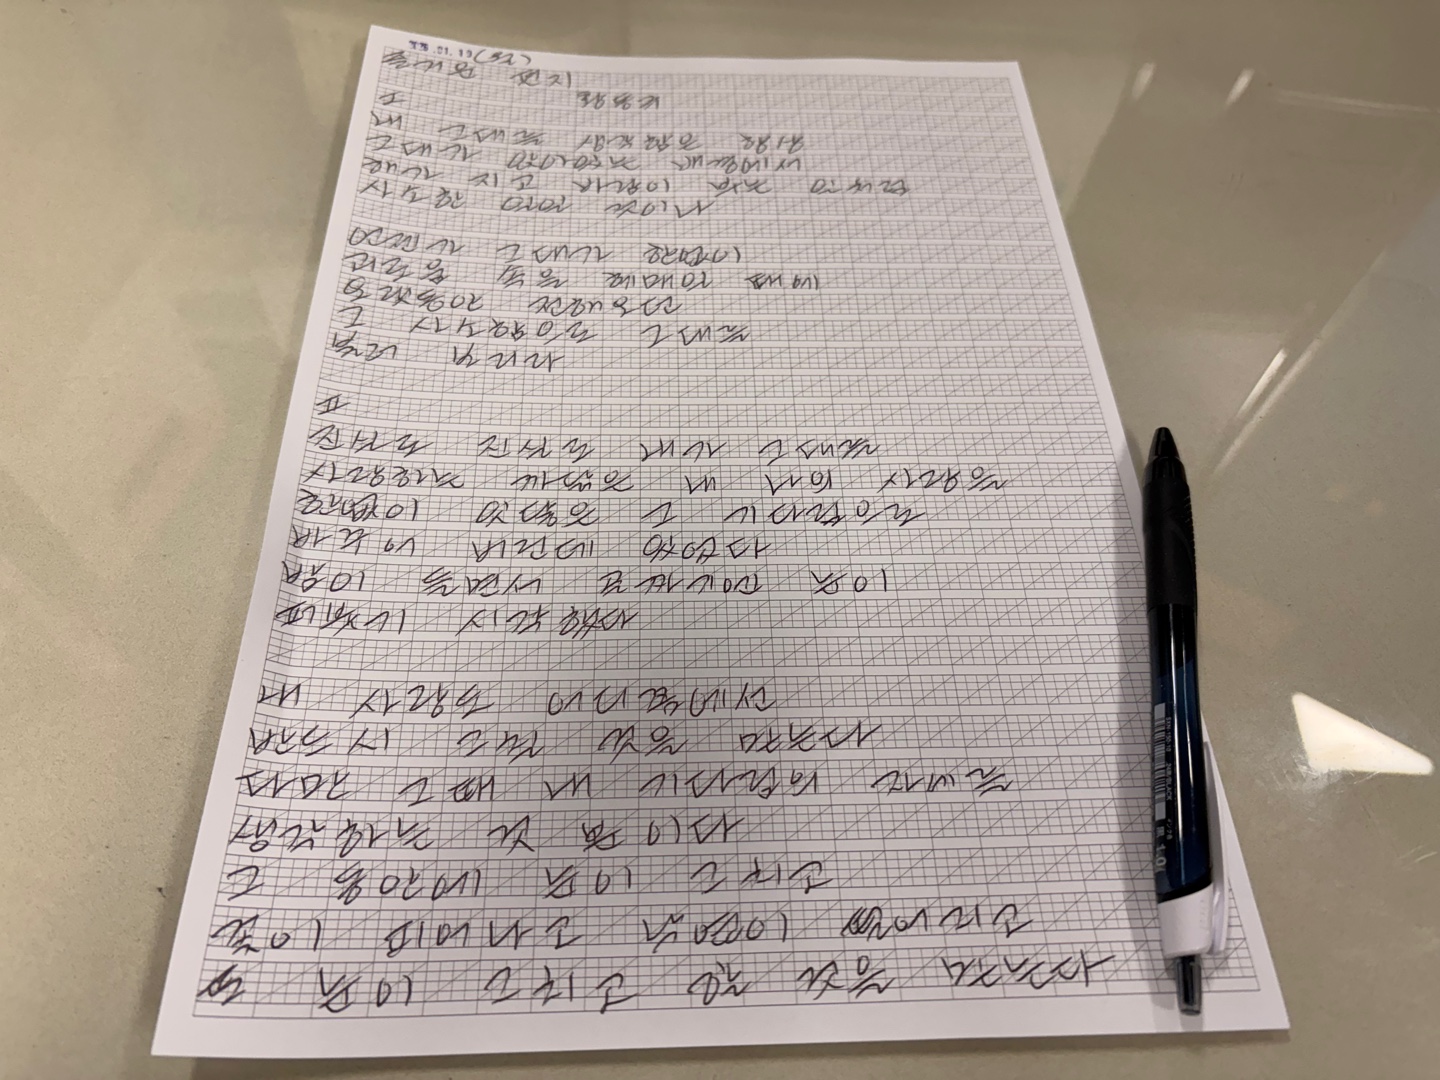 즐거운 편지
황동규
I
내 그대를 생각함은 항상
그대가 앉아있는 배경에서
해가 지고 바람이 부는 일처럼
사소한 일일 것이나
언젠가 그대가 한없이
괴로움 속을 헤매일 때에
오랫동안 전해오던
그 사소함으로 그대를
불러 보리라
II
진실로 진실로 내가 그대를
사랑하는 까닭은 내 나의 사랑을
한없이 잇닿은 그 기다림으로
바꾸어 버린데 있었다
밤이 들면서 골짜기엔 눈이
퍼붓기 시작했다
내 사랑도 어디쯤에선
반드시 그칠 것을 믿는다
다만 그때 내 기다림의 자세를
생각하는 것 뿐이다
그 동안에 눈이 그치고
꽃이 피어나고 낙엽이 떨어지고
또 눈이 그치고 할 것을 믿는다